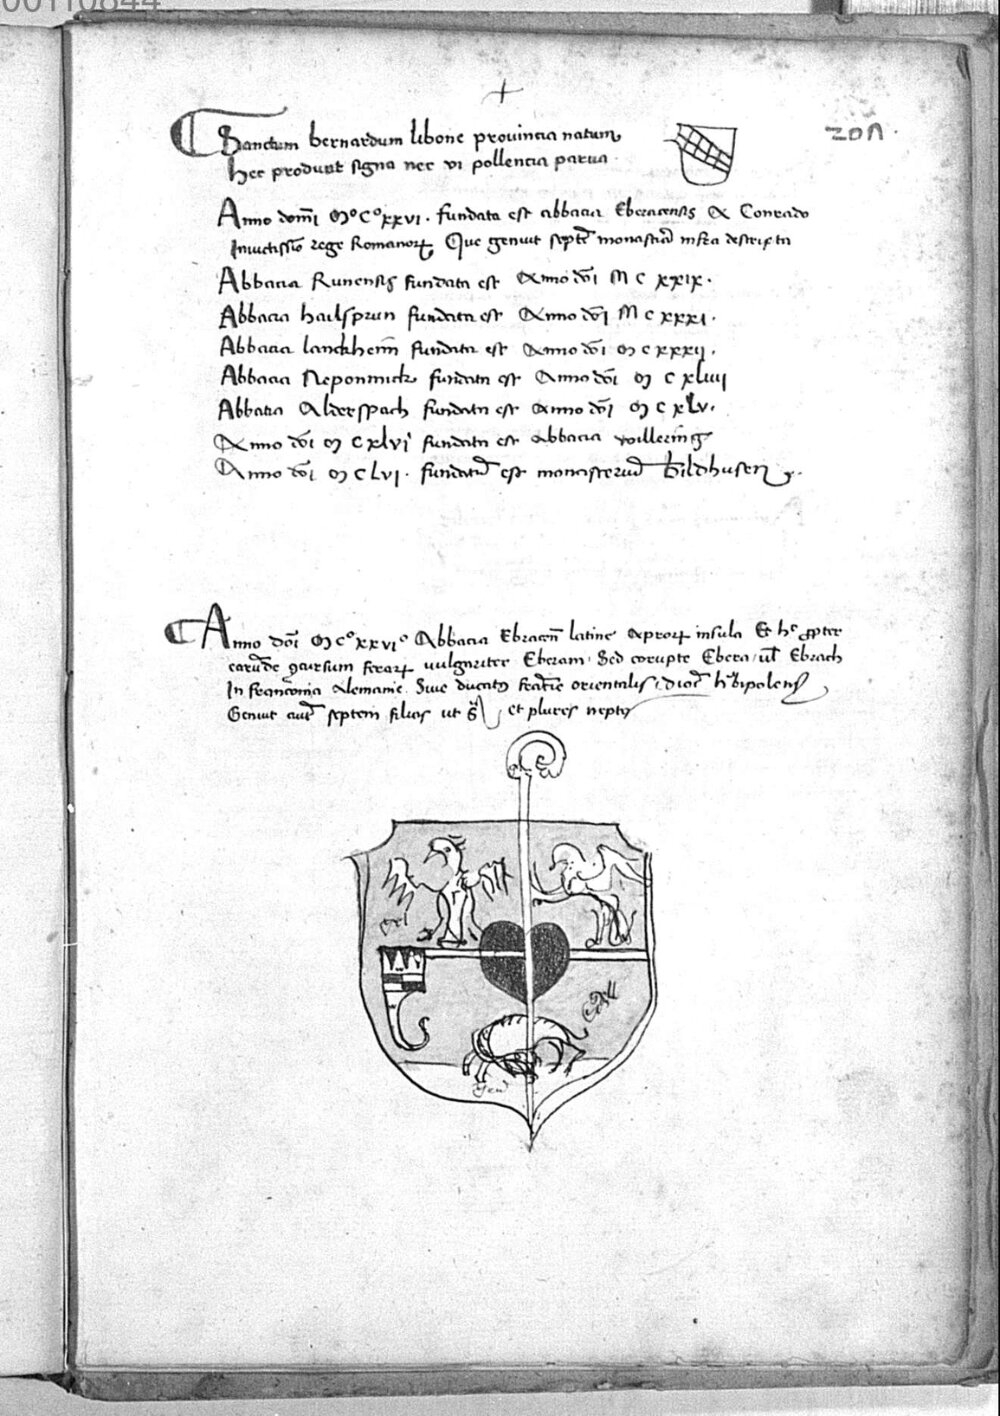 00110844
201
Sanctum bernardum libone prouincia natum
hec produnt signa nec vi pollencia parua
Anno domi Mº Cº xxvi. fundata est abbacia Eberacensis A Conrado
Inuictissio rege Romanorꝝ Que genuit septē monastiā infra descripta
Abbacia Runensis fundata est Anno dōi M C xxix.
Abbacia hailsprun fundata est Anno dōi M C xxxi.
Abbacia lanckheim fundata est Anno dōi M C xxxij.
Abbacia Nepomuck fundata est Anno dōi M C xliiij
Abbatia Alderspach fundata est Anno dōi M C xLv.
Anno dōi M C xlvi fundata est abbacia willering
Anno dōi M C Lvi. fundatū est monasteriū Bildhusen
Anno dōi M Cº xxviº Abbacia Ebracen̄ latine Aprorꝝ insula Et hᶜ ꝓpter
earūdē ꝯcursum ferarꝝ uulgariter Eberam. Sed corupte Ebera ul̄ Ebrach
In franconia Alemanie. Siue ducatꝰ francie orientalis. dioc̄ hᵇipolens̄
Genuit autē septem filias ut sᵃ et plures neptes